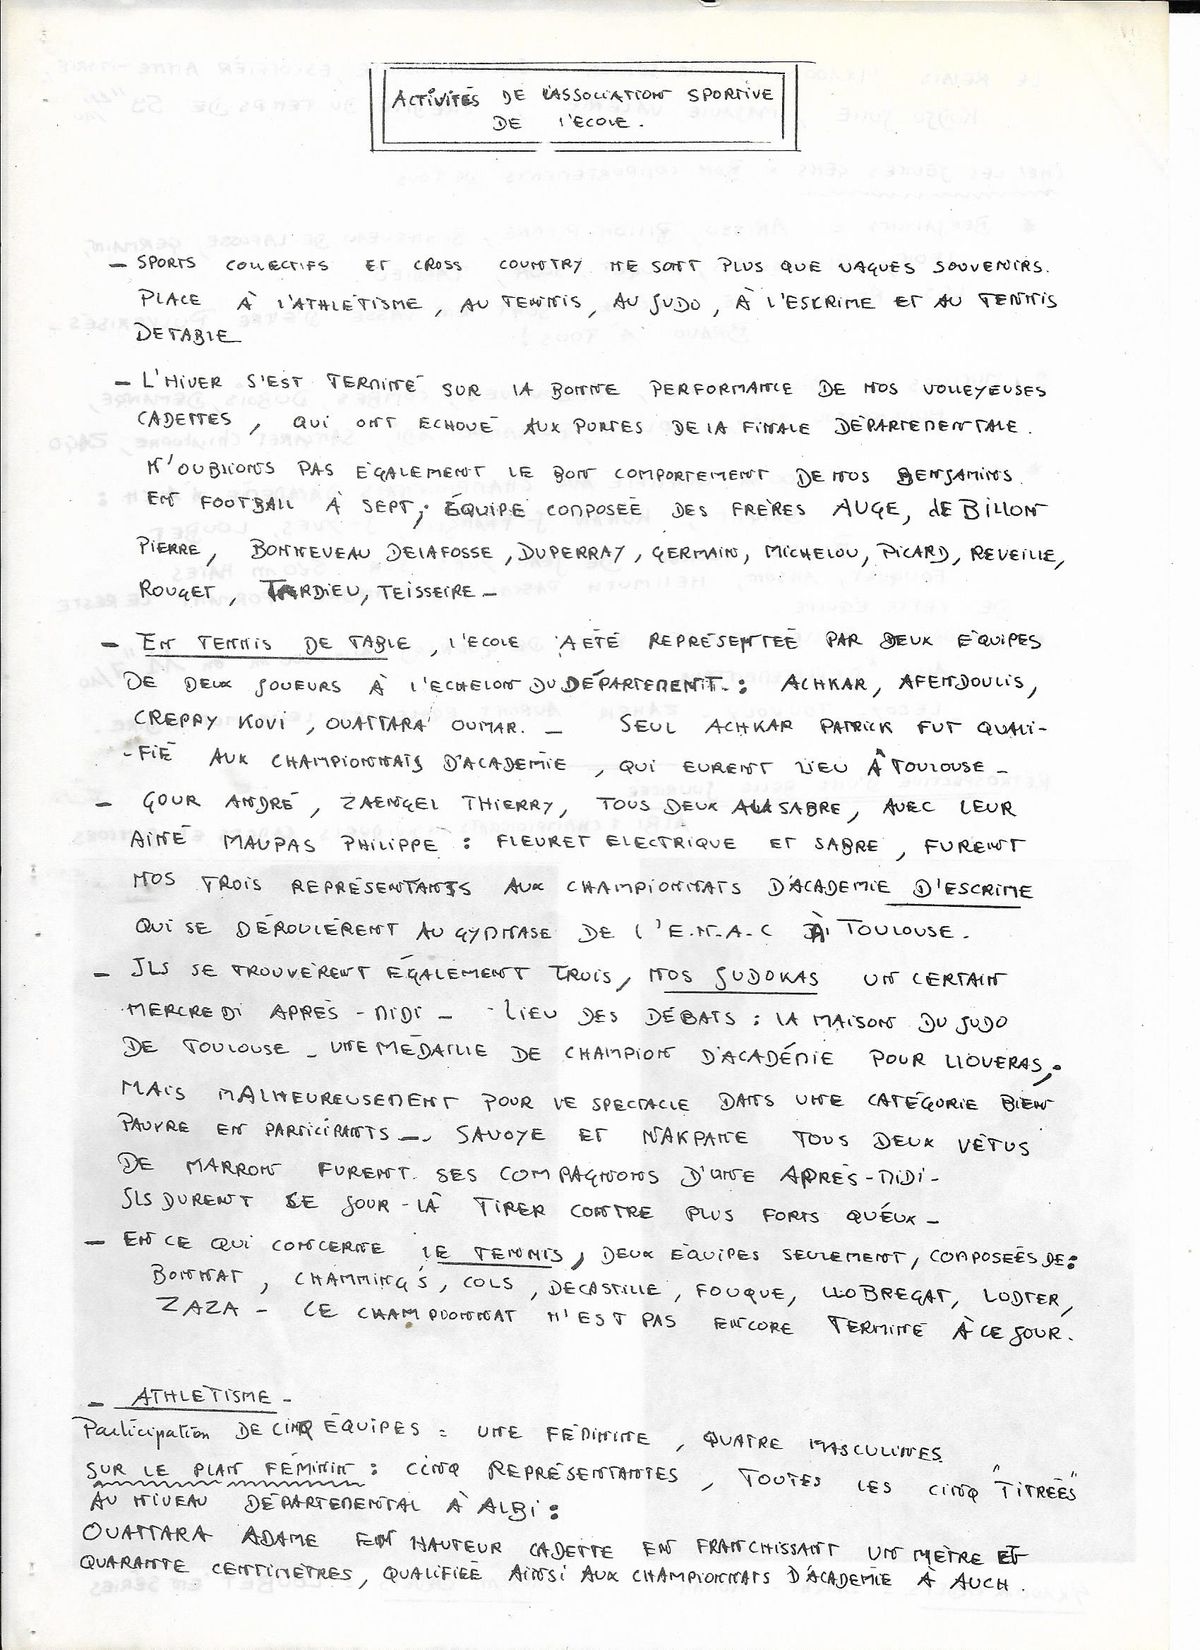 ACTIVITÉS DE L'ASSOCIATION SPORTIVE
DE L'ECOLE.
– SPORTS COLLECTIFS ET CROSS COUNTRY NE SONT PLUS QUE VAGUES SOUVENIRS.
PLACE À L'ATHLÉTISME, AU TENNIS, AU JUDO, À L'ESCRIME ET AU TENNIS
DE TABLE
– L'HIVER S'EST TERMINÉ SUR LA BONNE PERFORMANCE DE NOS VOLLEYEUSES
CADETTES, QUI ONT ECHOUÉ AUX PORTES DE LA FINALE DÉPARTEMENTALE.
N'OUBLIONS PAS ÉGALEMENT LE BON COMPORTEMENT DE NOS BENJAMINS
EN FOOTBALL À SEPT; ÉQUIPE COMPOSÉE DES FRÈRES AUGE, de BILLON
PIERRE, BONNEVEAU DELAFOSSE, DUPERRAY, GERMAIN, MICHELOU, PICARD, REVEILLE,
ROUGET, TARDIEU, TEISSEIRE –
– EN TENNIS DE TABLE, L'ECOLE A ÉTÉ REPRÉSENTÉE PAR DEUX ÉQUIPES
DE DEUX JOUEURS À L'ECHELON DU DÉPARTEMENT.: ACHKAR, AFENDOULIS,
CREPPY KOVI, OUATTARA OUMAR. – SEUL ACHKAR PATRICK FUT QUALI-
-FIÉ AUX CHAMPIONNATS D'ACADEMIE, QUI EURENT LIEU À TOULOUSE –
– GOUR ANDRÉ, ZAENGEL THIERRY, TOUS DEUX AU SABRE, AVEC LEUR
AINÉ MAUPAS PHILIPPE : FLEURET ELECTRIQUE ET SABRE, FURENT
NOS TROIS REPRÉSENTANTS AUX CHAMPIONNATS D'ACADEMIE D'ESCRIME
QUI SE DÉROULÈRENT AU GYMNASE DE l'E.N.A.C À TOULOUSE.
– ILS SE TROUVÈRENT ÉGALEMENT TROIS, NOS JUDOKAS UN CERTAIN
MERCREDI APRÈS-MIDI – LIEU DES DÉBATS : LA MAISON DU JUDO
DE TOULOUSE – UNE MÉDAILLE DE CHAMPION D'ACADÉMIE POUR LLOVERAS;
MAIS MALHEUREUSEMENT POUR LE SPECTACLE DANS UNE CATÉGORIE BIEN
PAUVRE EN PARTICIPANTS –. SAVOYE ET N'AKPANE TOUS DEUX VÊTUS
DE MARRON FURENT SES COMPAGNONS D'UNE APRÈS-MIDI –
ILS DURENT CE JOUR-LÀ TIRER CONTRE PLUS FORTS QU'EUX –
– EN CE QUI CONCERNE LE TENNIS, DEUX ÉQUIPES SEULEMENT, COMPOSÉES DE:
BONNAT, CHAMMINGS, COLS, DECASTILLE, FOUQUE, LLOBREGAT, LODTER,
ZAZA – CE CHAMPIONNAT N'EST PAS ENCORE TERMINÉ À CE JOUR.
– ATHLÉTISME –
Participation DE CINQ ÉQUIPES : UNE FÉMININE, QUATRE MASCULINES
SUR LE PLAN FÉMININ : CINQ REPRÉSENTANTES, TOUTES LES CINQ "TITRÉES"
AU NIVEAU DÉPARTEMENTAL À ALBI :
OUATTARA ADAME EN HAUTEUR CADETTE EN FRANCHISSANT UN MÈTRE ET
QUARANTE CENTIMÈTRES, QUALIFIÉE AINSI AUX CHAMPIONNATS D'ACADÉMIE À AUCH.